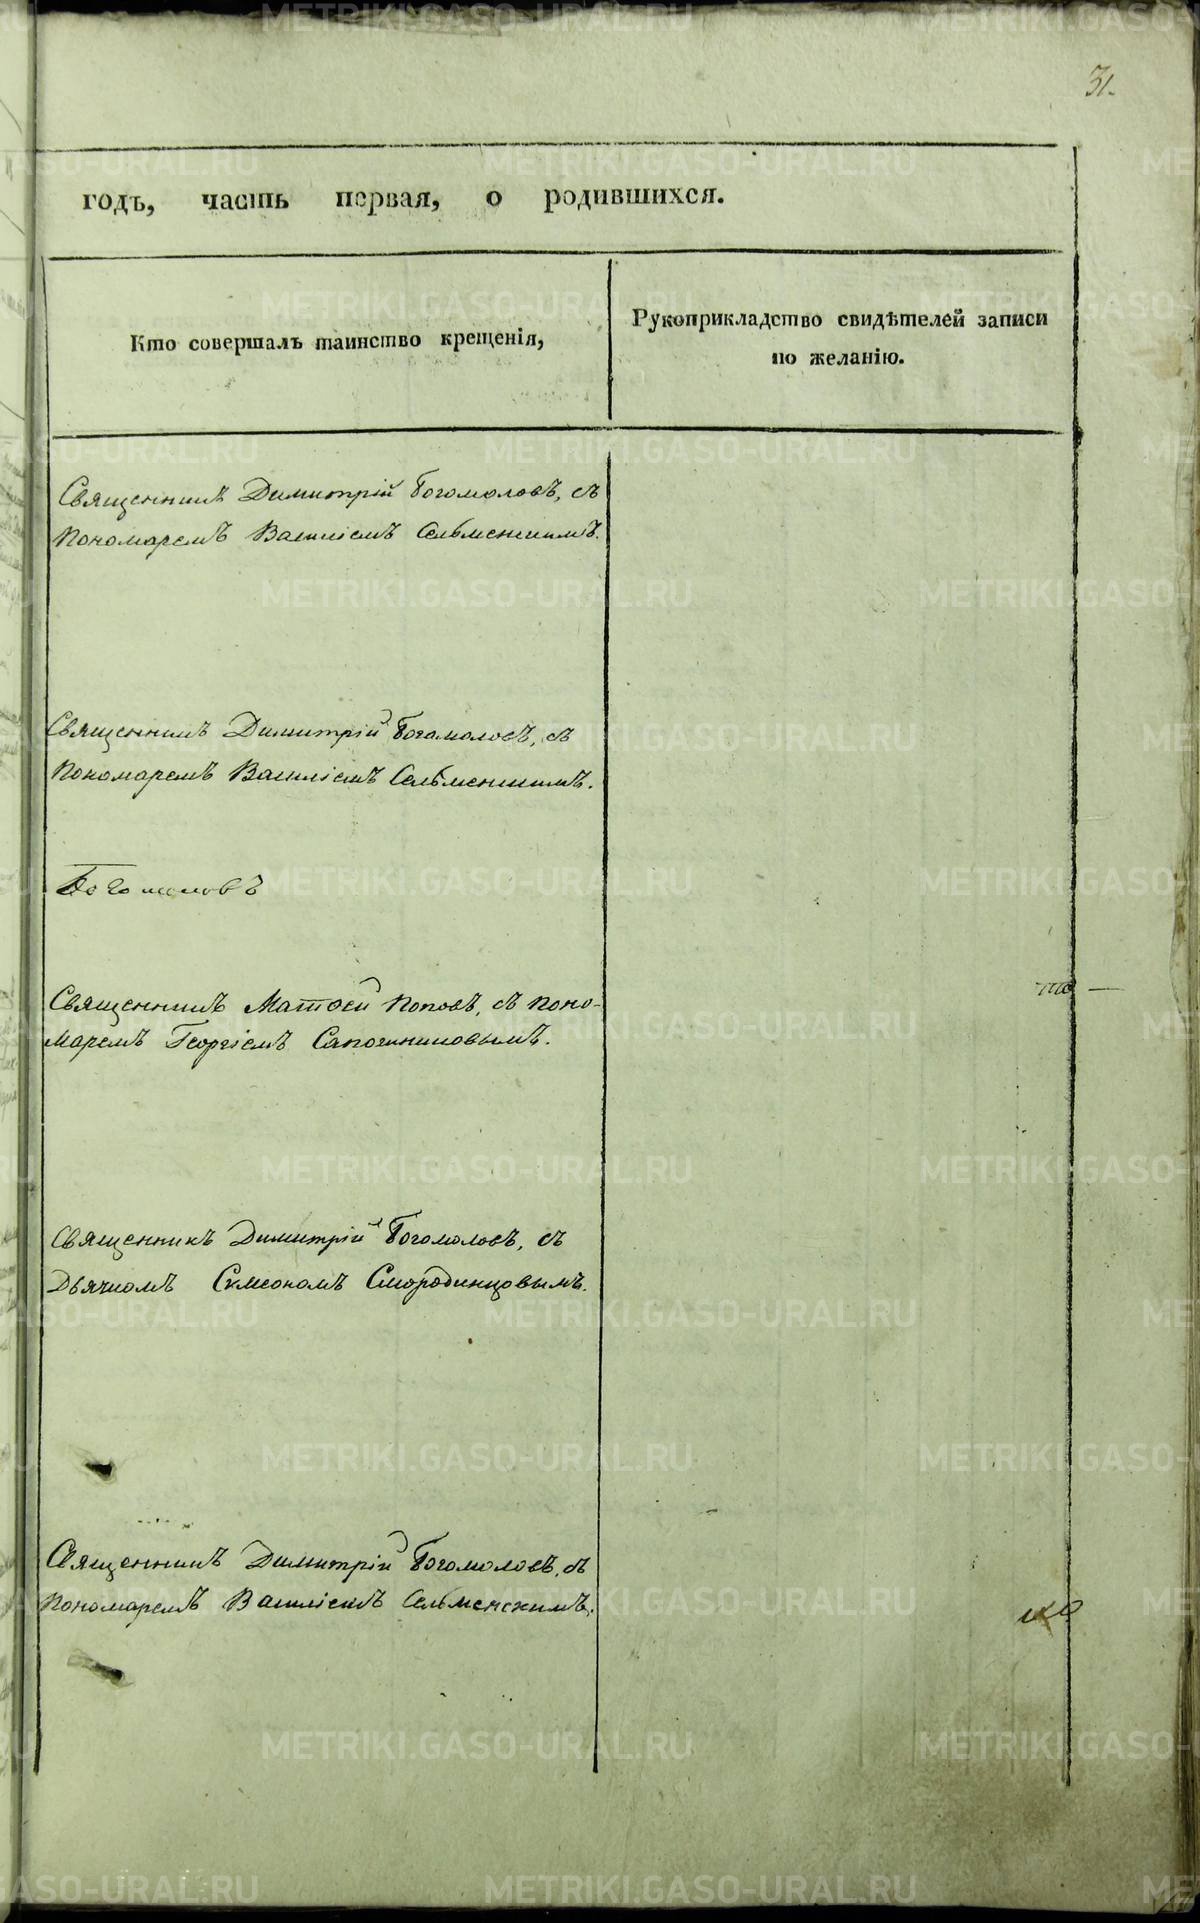 31.
годъ, часть первая, о родившихся.
Кто совершалъ таинство крещенія,
Рукоприкладство свидѣтелей записи
по желанію.
Священникъ Димитрій Богомоловъ, съ
Пономаремъ Василіемъ Сельменскимъ.
Священникъ Димитрій Богомоловъ, съ
Пономаремъ Василіемъ Сельменскимъ.
Богомоловъ
Священникъ Матѳей Поповъ, съ Поно-
маремъ Георгіемъ Сапожниковымъ.
Священникъ Димитрій Богомоловъ, съ
Дьячкомъ Симеономъ Смородинцовымъ.
Священникъ Димитрій Богомоловъ, съ
Пономаремъ Василіемъ Сельменскимъ.
METRIKI.GASO-URAL.RU